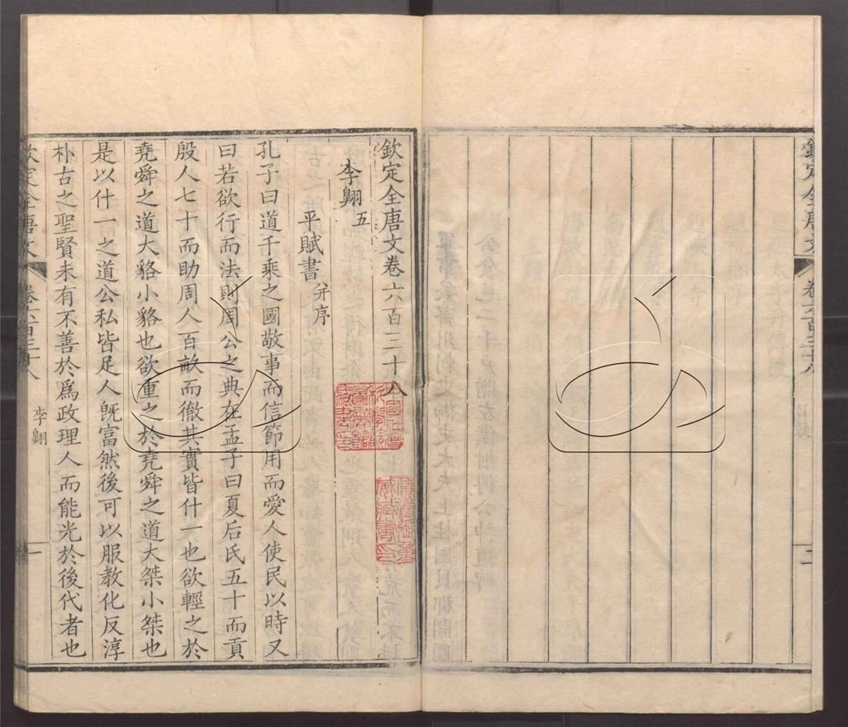 欽定全唐文
卷六百三十八
目錄
二
欽定全唐文卷六百三十八
李翺五
平賦書并序
孔子曰道千乘之國敬事而信節用而愛人使民以時又
曰若欲行而法則周公之典在孟子曰夏后氏五十而貢
殷人七十而助周人百畝而徹其實皆什一也欲輕之於
堯舜之道大貉小貉也欲重之於堯舜之道大桀小桀也
是以什一之道公私皆足人旣富然後可以服敎化反淳
朴古之聖賢未有不善於爲政理人而能光於後代者也
欽定全唐文
卷六百三十八
李翺
一